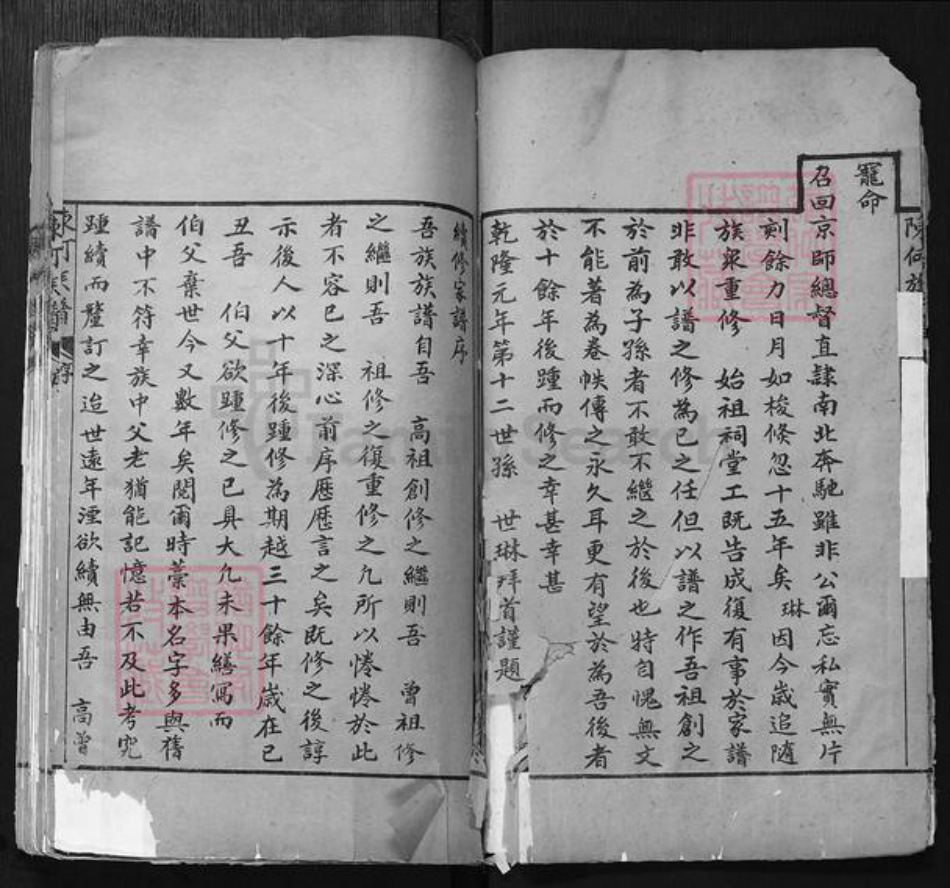 陳何族
寵命
召回京師總督直隸南北奔馳雖非公爾忘私實無片
刻餘力日月如梭倐忽十五年矣琳因今歲追随
族衆重修 始祖祠堂工既告成復有事於家譜
非敢以譜之修為已之任但以譜之作吾祖創之
於前為子孫者不敢不繼之於後也特自愧無文
不能著為卷帙傳之永久耳更有望於為吾後者
於十餘年後踵而修之幸甚幸甚
乾隆元年第十二世孫 世琳拜首謹題
續修家譜序
吾族族譜自吾 高祖創修之繼則吾 曾祖修
之繼則吾 祖修之復重修之凢所以惓惓於此
者不容已之深心前序歷歷言之矣既修之後諄
示後人以十年後踵修為期越三十餘年歲在已
丑吾 伯父欲踵修之已具大凢未果繕寫而
伯父棄世今又數年矣閱爾時藁本名字多與舊
譜中不符幸族中父老猶能記憶若不及此考究
踵續而釐訂之迨世遠年湮欲續無由吾 高曾
FamilySearch